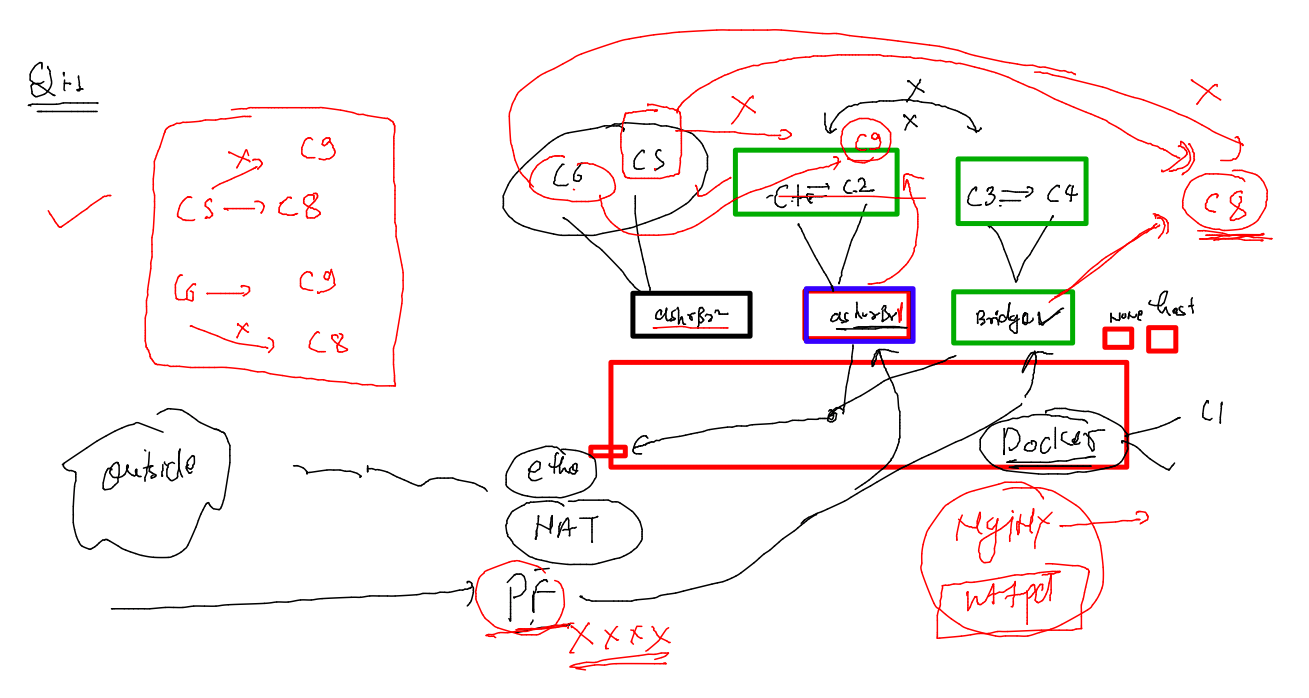 C9
C5 → C8
C6 → C9
C8
C6
C5
C9
C2
C3 ⇒ C4
C8
ashrBr2
ashrBr1
Bridge
None
host
outside
eth0
NAT
PF
X X X X
Docker
C1
Nginx
httpd